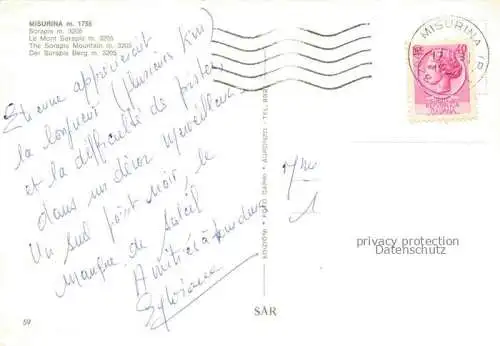 MISURINA m. 1756
Sorapis m. 3205
Le Mont Sorapis m. 3205
The Sorapis Mountain m. 3205
Der Sorapis Berg m. 3205
apprécierait
la longueur (plusieurs Km)
et la difficulté de pistes,
dans un décor merveilleux
Un seul point noir, le
manque de soleil
Amitiés à tous deux
Sylviane
MISURINA (B
SAR
59
privacy protection
Datenschutz